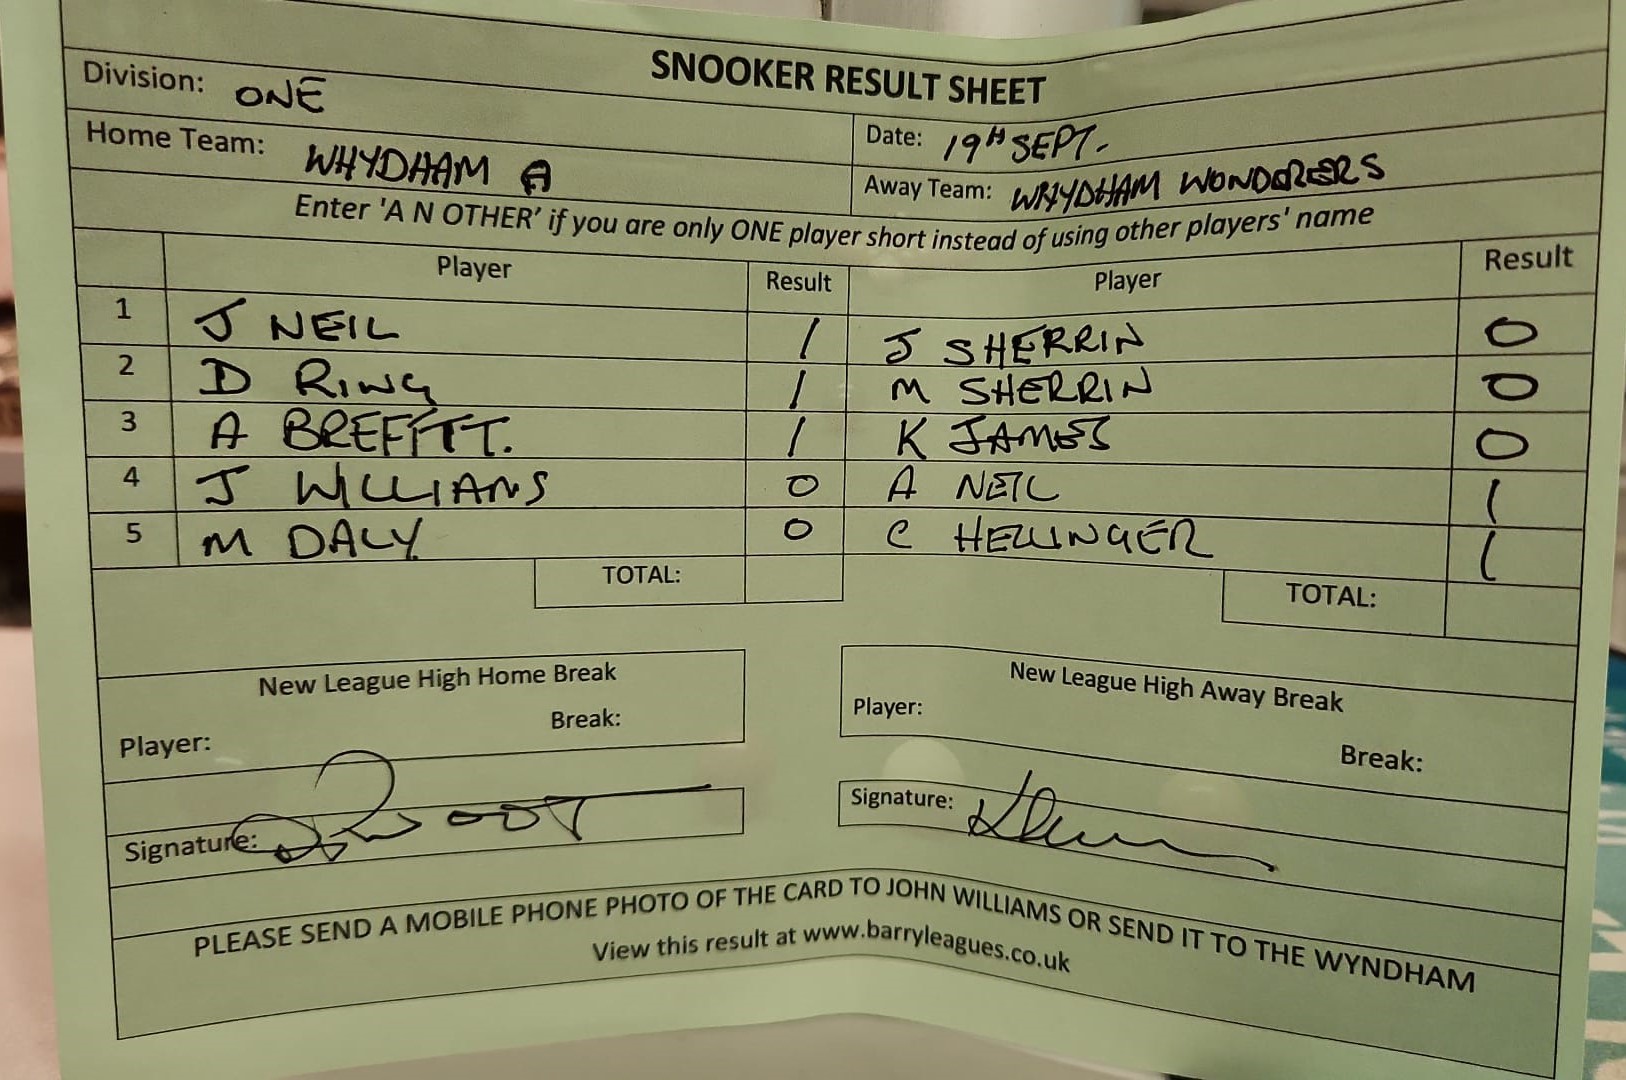 SNOOKER RESULT SHEET
Division: ONE
Home Team: WHYDHAM A
Date: 19TH SEPT.
Away Team: WHYDHAM WONDERERS
Enter 'A N OTHER' if you are only ONE player short instead of using other players' name
Player Result Player Result
1 J NEIL 1 J SHERRIN 0
2 D RING 1 M SHERRIN 0
3 A BREFITT. 1 K JAMES 0
4 J WILLIANS 0 A NEIL 1
5 M DALY 0 C HELLINGER 1
TOTAL: TOTAL:
New League High Home Break
Player: Break:
New League High Away Break
Player: Break:
Signature:
Signature:
PLEASE SEND A MOBILE PHONE PHOTO OF THE CARD TO JOHN WILLIAMS OR SEND IT TO THE WYNDHAM
View this result at www.barryleagues.co.uk